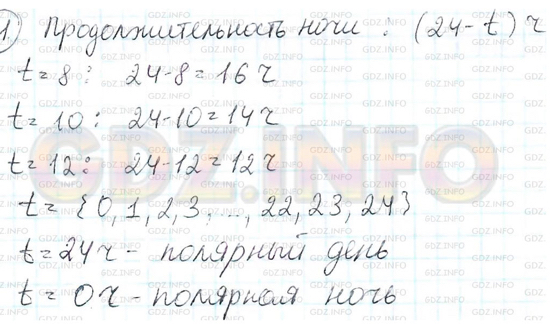 1) Продолжительность ночи : (24-t) ч
t=8 : 24-8=16 ч
t=10 : 24-10=14 ч
t=12 : 24-12=12 ч
t= {0, 1, 2, 3, ..., 22, 23, 24}
t=24 ч - полярный день
t=0 ч - полярная ночь
GDZ.INFO